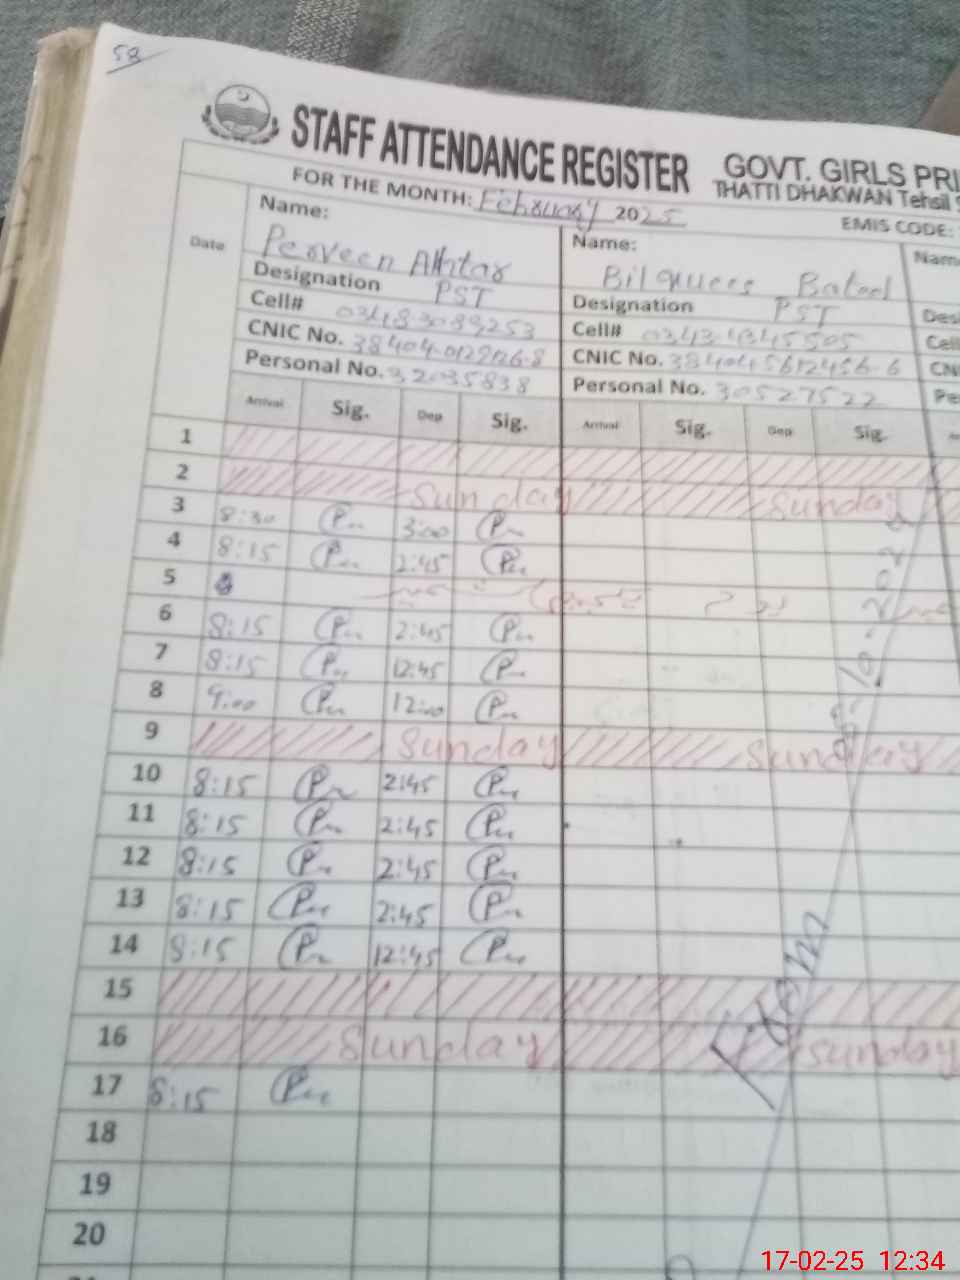 58
STAFF ATTENDANCE REGISTER GOVT. GIRLS PRI
THATTI DHAKWAN Tehsil
FOR THE MONTH: February 2025
EMIS CODE:
Date
Name: Name: Name
Perveen Akhtar Bilquees Batool
Designation PST Designation PST Des
Cell# 03483089253 Cell# Cell
CNIC No. CNIC No. CN
Personal No. 32035838 Personal No. 30527522 Pe
Arrival Sig. Dep Sig. Arrival Sig. Dep Sig.
1
2 Sunday Sunday
3 8:30 3:00
4 8:15 2:45
5
6 8:15 2:45
7 8:15 12:45
8 9:00 12:00
9 Sunday Sunday
10 8:15 2:45
11 8:15 2:45
12 8:15 2:45
13 8:15 2:45
14 8:15 12:45
15
16 Sunday Sunday
17 8:15
18
19
20
From
17-02-25 12:34